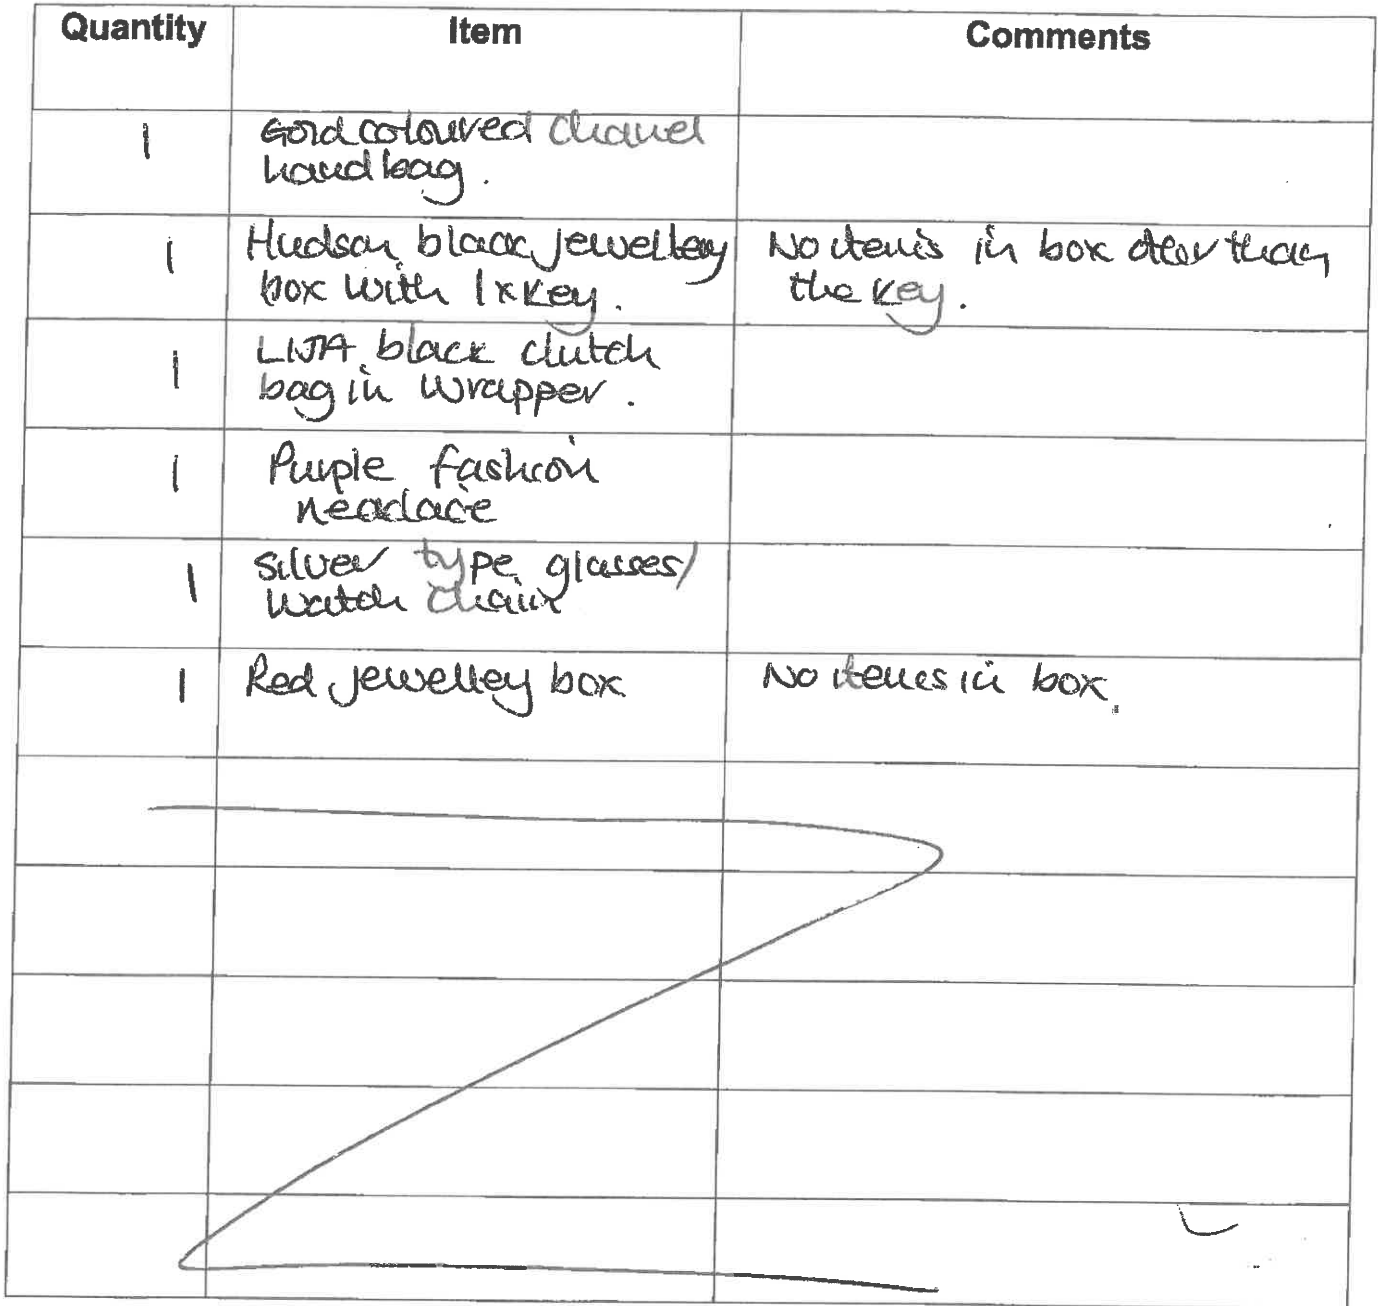 Quantity Item Comments
1 Gold coloured Chanel
handbag.
1 Hudson black jewellery No items in box other than
box with 1x key. the key.
1 black clutch
bag in wrapper.
1 Purple fashion
necklace
1 Silver type glasses/
watch chain
1 Red jewelley box No items in box.